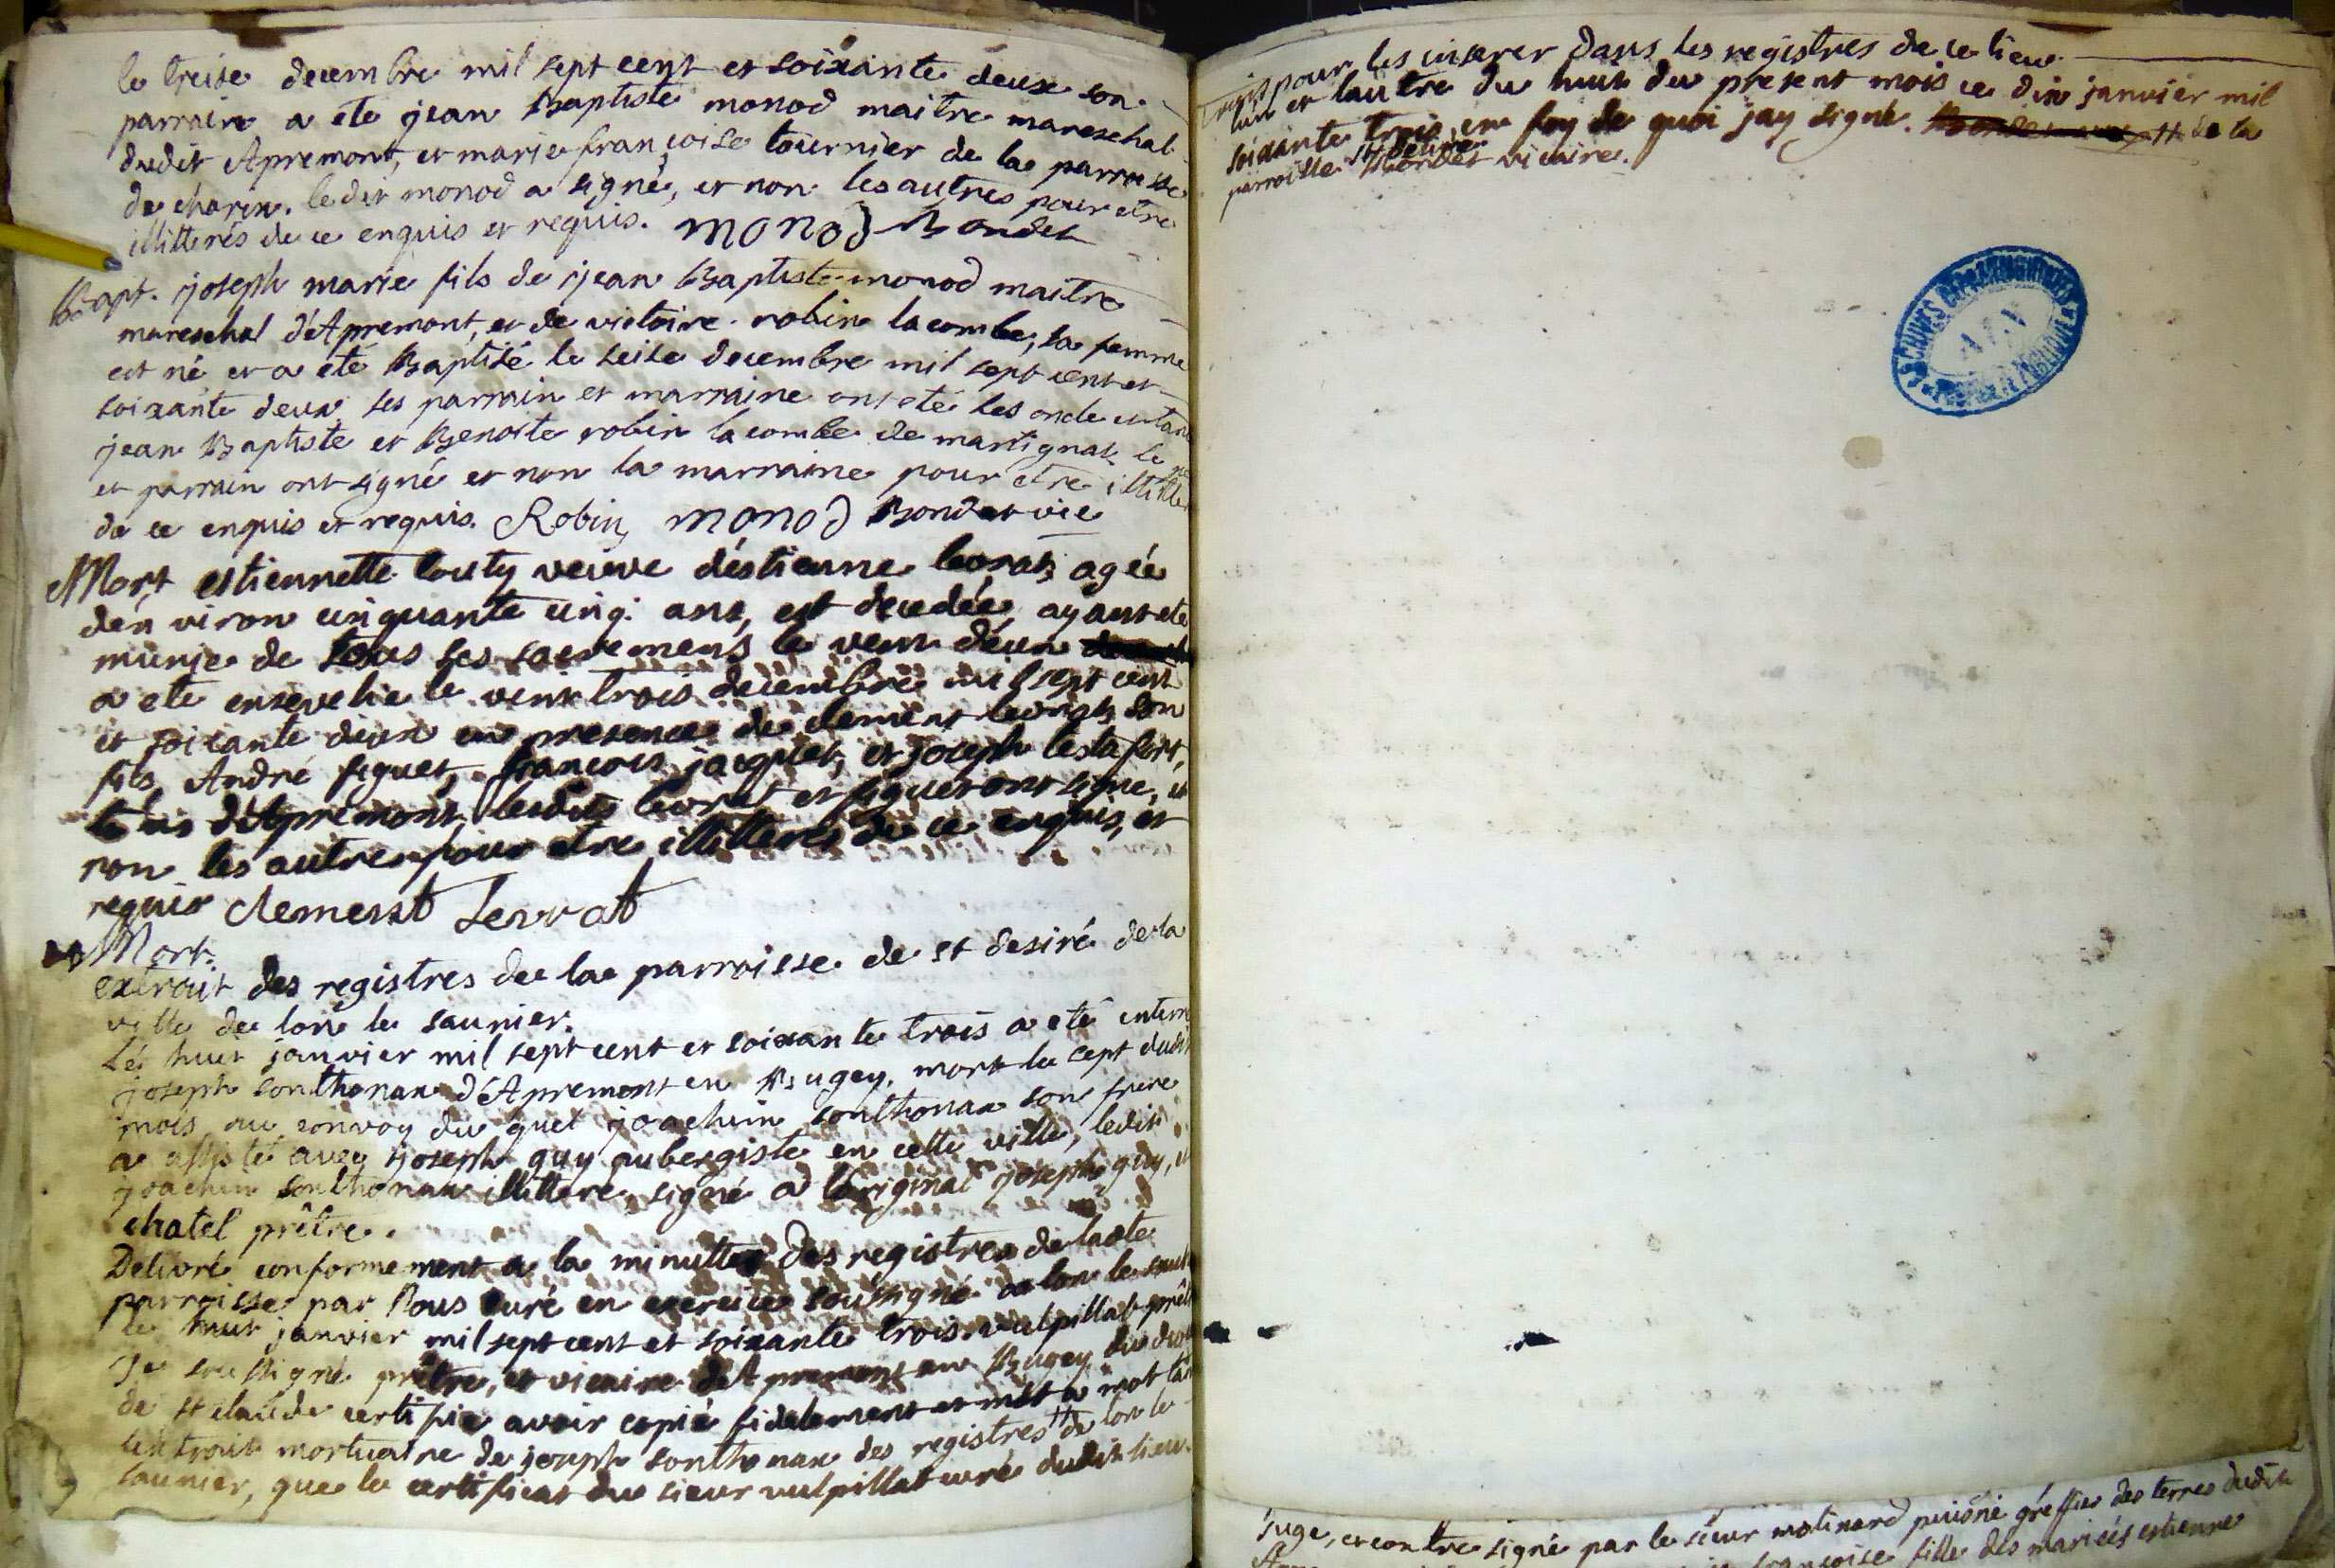 le treise decembre mil sept cent et soixante deux son
parrain a ete jean Baptiste monod maitre mareschal
dudit Apremont, et marie françoise tournier de la parroisse
de charix. ledit monod a signé, et non les autres pour etre
illitterés de ce enquis et requis. monod Bondet
Bapt. joseph marie fils de jean Baptiste monod maitre
mareschal d'Apremont, et de victoire robin lacombe, sa femme
est né et a eté Baptisé le seise decembre mil sept cent et
soixante deux, ses parrain et marraine ont eté les oncle et tante
jean Baptiste et Benoite robin lacombe de martignat, le
et parrain ont signé et non la marraine pour etre
de ce enquis et requis. Robin, monod Bondet vic
Mort estiennette touty veuve déstienne levrat, agée
dén viron cinquante cinq ans, est decedée, ayant eté
munie de tous ses sacremens le vent déux
a eté ensevelie le vent trois decembre mil sept cent
et soixante deux en presence de clement levrat, son
fils, André figuet, françois jacquet, et joseph testafort,
tous d'Apremont, lesdits levrat et figuet ont signé, et
non les autres pour etre illitterés de ce enquis, et
requis clement Levrat
Mort.
extrait des registres de la parroisse de st desiré de la
ville de lon le saunier.
Le huit janvier mil sept cent et soixante trois a eté
joseph sonthonax d'Apremont en Bugey, mort le sept dudit
mois, au convoy du quel joachim sonthonax son frere
a assisté avec joseph guy aubergiste en cette ville, ledit
joachim sonthonax illitteré, signé a l'original joseph guy, et
chatel prêtre.
Delivré conformement a la minutte des registres de ladte
parroisse par Nous curé en exercice soussigné a lon le
le huit janvier mil sept cent et soixante trois. vulpillat
Je soussigné prêtre, et vicaire d'Apremont en Bugey du
de st claude certifie avoir copié fidelement et mot a mot
l'extrait mortuaire de joseph sonthonax des registres # de lon le
saunier, que le certificat du sieur vulpillat curé dudit lieu.
pour les inserer dans les registres de ce lieu
l'un et lautre du huit du present mois ce dix janvier mil
soixante trois en foy de quoi jay signé. # de la
parroisse st desiré
Bondet vicaire.
ARCHIVES DÉPARTEMENTALES
AIN
juge, et contre signé par le sieur molinard puisné gréffier des terres dudit
françoise fille des mariés estienne